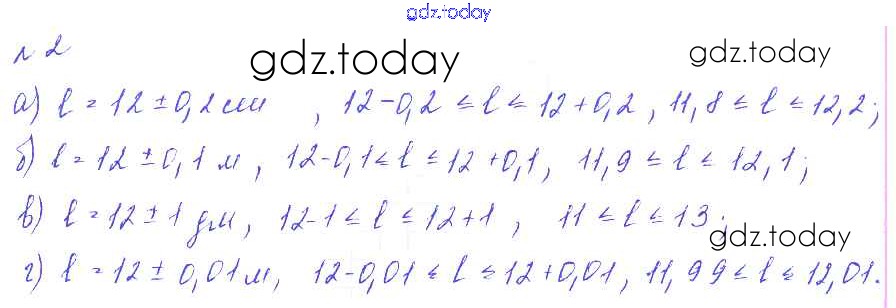 gdz.today
№ 2
gdz.today
gdz.today
а) ℓ = 12 ± 0,2 см , 12-0,2 ≤ ℓ ≤ 12+0,2 , 11,8 ≤ ℓ ≤ 12,2;
б) ℓ = 12 ± 0,1 м , 12-0,1 ≤ ℓ ≤ 12+0,1, 11,9 ≤ ℓ ≤ 12,1;
в) ℓ = 12 ± 1 дм, 12-1 ≤ ℓ ≤ 12+1 , 11 ≤ ℓ ≤ 13;
gdz.today
г) ℓ = 12 ± 0,01 м, 12-0,01 ≤ ℓ ≤ 12+0,01, 11,99 ≤ ℓ ≤ 12,01.